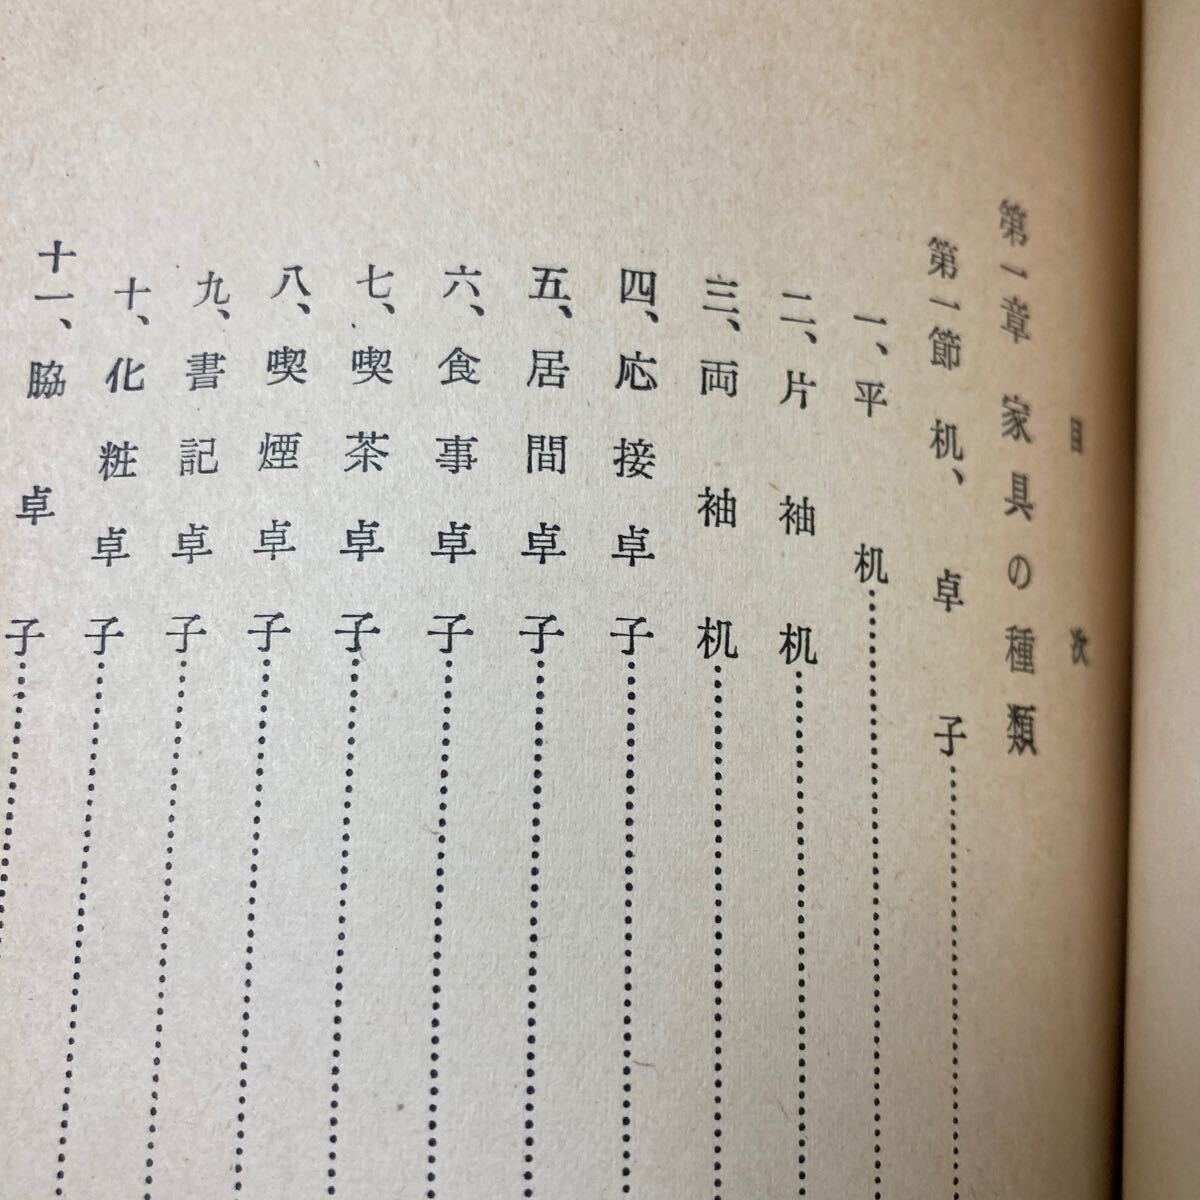 目次
第一章 家具の種類
第一節 机、卓子
一、平机
二、片袖机
三、両袖机
四、応接卓子
五、居間卓子
六、食事卓子
七、喫茶卓子
八、喫煙卓子
九、書記卓子
十、化粧卓子
十一、脇卓子